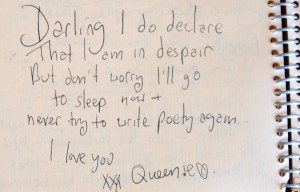 Darling I do declare
That I am in despair
But don't worry I'll go
to sleep now +
never try to write poety again...
I love you
XXX Queenie